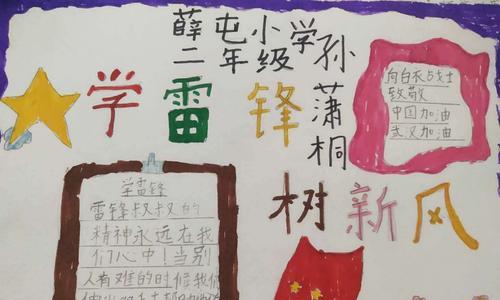 薛屯小学
二年级
孙潇桐
学雷锋
树新风
向白衣战士
致敬
中国加油
武汉加油
学雷锋
雷锋叔叔的
精神永远在我
们心中！当别
人有难的时候我们